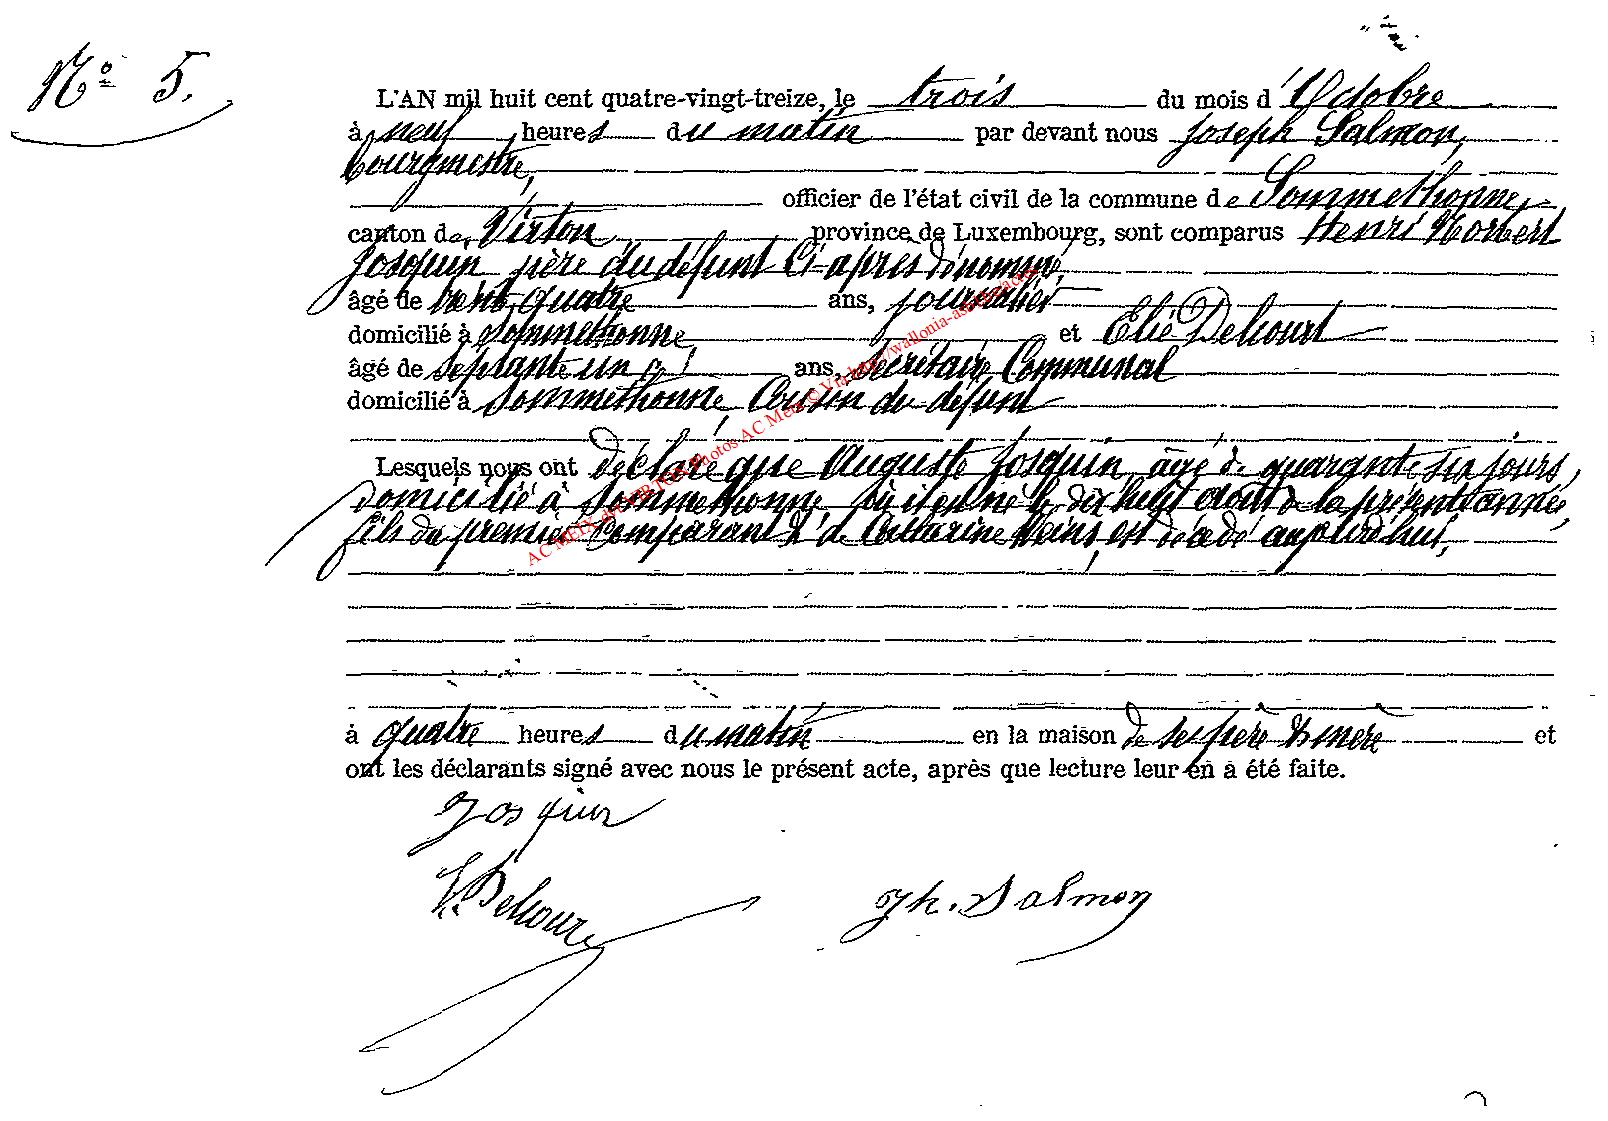 No 5.
L'AN mil huit cent quatre-vingt-treize, le trois du mois d'Octobre
à neuf heures du matin par devant nous Joseph Salmon,
bourgmestre,
officier de l'état civil de la commune de Sommethonne,
canton de Virton province de Luxembourg, sont comparus Henri Norbert
Josquin père du défunt ci-après dénommé,
âgé de trente quatre ans, journalier
domicilié à Sommethonne et Elie Delcourt
âgé de septante un ans, Secrétaire Communal
domicilié à Sommethonne, Cousin du défunt
Lesquels nous ont déclaré que Auguste Josquin âgé de quarante six jours,
domicilié à Sommethonne, où il est né le dix huit août de la présente année,
fils du premier Comparant & de Catherine est décédé aujourd'hui,
à quatre heures du matin en la maison de ses père & mère et
ont les déclarants signé avec nous le présent acte, après que lecture leur en a été faite.
Josquin
E. Delcourt
Jh. Salmon